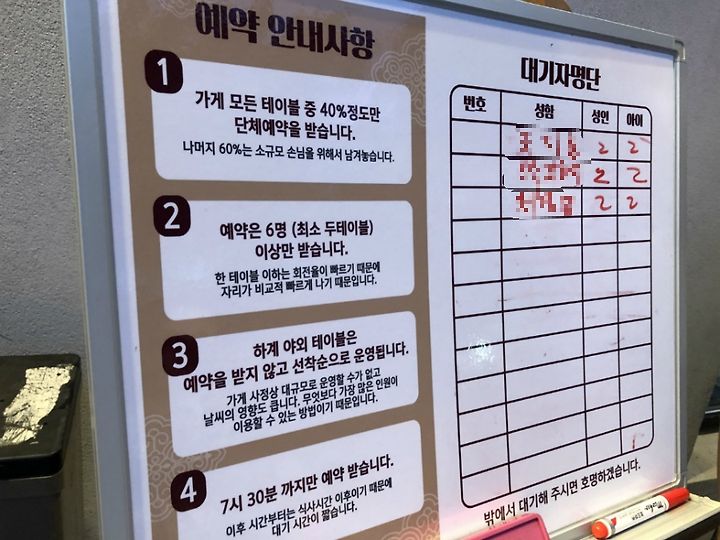 예약 안내사항
1
가게 모든 테이블 중 40%정도만
단체예약을 받습니다.
나머지 60%는 소규모 손님을 위해서 남겨놓습니다.
2
예약은 6명 (최소 두테이블)
이상만 받습니다.
한 테이블 이하는 회전율이 빠르기 때문에
자리가 비교적 빠르게 나기 때문입니다.
3
하계 야외 테이블은
예약을 받지 않고 선착순으로 운영됩니다.
가게 사정상 대규모로 운영할 수가 없고
날씨의 영향도 큽니다. 무엇보다 가장 많은 인원이
이용할 수 있는 방법이기 때문입니다.
4
7시 30분 까지만 예약 받습니다.
이후 시간부터는 식사시간 이후이기 때문에
대기 시간이 짧습니다.
대기자명단
번호 성함 성인 아이
2 2
2 2
2 2
밖에서 대기해 주시면 호명하겠습니다.